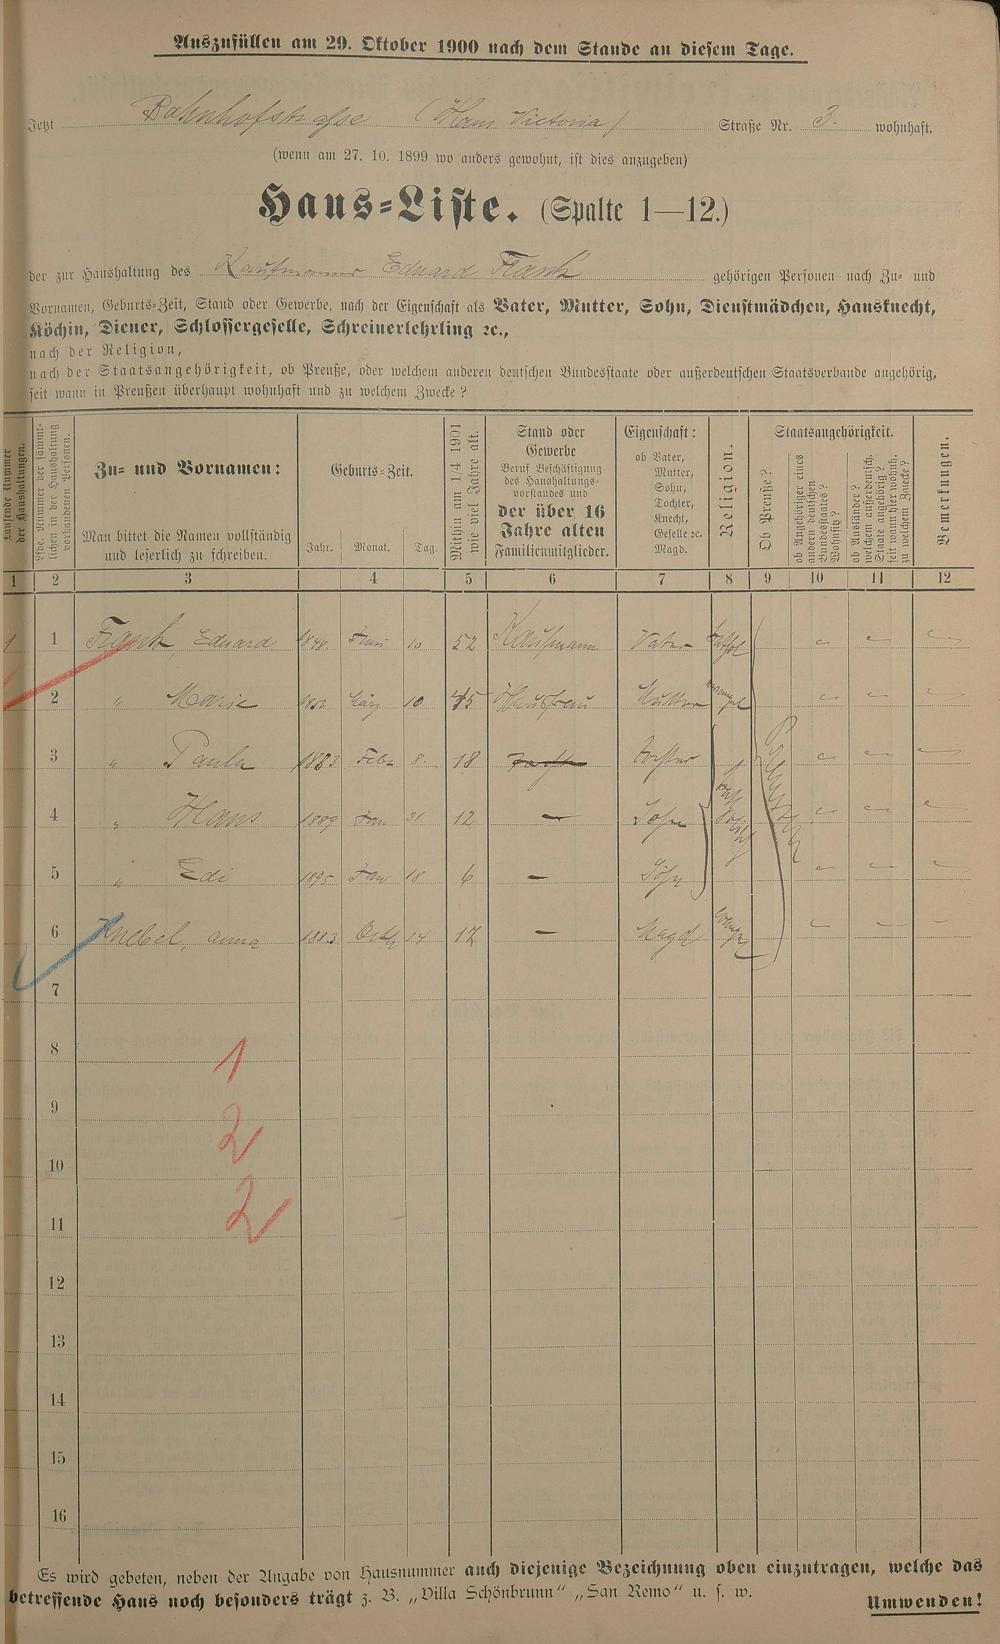 Auszufüllen am 29. Oktober 1900 nach dem Stande an diesem Tage.
Jetzt Bahnhofstraße (Haus Victoria) Straße Nr. 3. wohnhaft.
(wenn am 27. 10. 1899 wo anders gewohnt, ist dies anzugeben)
Haus-Liste. (Spalte 1—12.)
der zur Haushaltung des Kaufmanns Eduard Flach gehörigen Personen nach Zu- und
Vornamen, Geburts-Zeit, Stand oder Gewerbe, nach der Eigenschaft als Vater, Mutter, Sohn, Dienstmädchen, Hausknecht,
Köchin, Diener, Schlossergeselle, Schreinerlehrling ꝛc.,
nach der Religion,
nach der Staatsangehörigkeit, ob Preuße, oder welchem anderen deutschen Bundesstaate oder außerdeutschen Staatsverbande angehörig,
seit wann in Preußen überhaupt wohnhaft und zu welchem Zwecke?
Laufende Nummer der Haushaltungen.
Lfde. Nummer der sämmtlichen in der Haushaltung vorhandenen Personen.
Zu- und Vornamen:
Man bittet die Namen vollständig
und leserlich zu schreiben.
Geburts-Zeit.
Jahr. Monat. Tag.
Mithin am 1/4 1901
wie viel Jahre alt.
Stand oder
Gewerbe
Beruf Beschäftigung
des Haushaltungs-
vorstandes und
der über 16
Jahre alten
Familienmitglieder.
Eigenschaft:
ob Vater,
Mutter,
Sohn,
Tochter,
Knecht,
Geselle ꝛc.
Magd.
Religion.
Staatsangehörigkeit.
Ob Preuße?
ob Angehöriger eines
andern deutschen
Bundesstaates?
Wohnsitz?
ob Ausländer?
welchem außerdeutsch.
Staate angehörig?
seit wann hier wohnh.
zu welchem Zwecke?
Bemerkungen.
1 2 3 4 5 6 7 8 9 10 11 12
1 1 Flach, Eduard 1848. 10 52 Kaufmann Vater kathol
2 " Marie März 10 45 Hausfrau Mutter evangel
3 " Paula 1883 Febr 8. 18 Tochter
4 " Hans 1889 Jan 31 12 — Sohn
5 " Edi 1895 Jan 18 6 — Sohn
katholisch
Preussen
6 Knebel, Anna 1883. Octb 14 17 — Magd evangel
7
8 1
9 2
10
11 2
12
13
14
15
16
Es wird gebeten, neben der Angabe von Hausnummer auch diejenige Bezeichnung oben einzutragen, welche das
betreffende Haus noch besonders trägt z. B. „Villa Schönbrunn“ „San Remo“ u. s. w.
Umwenden!